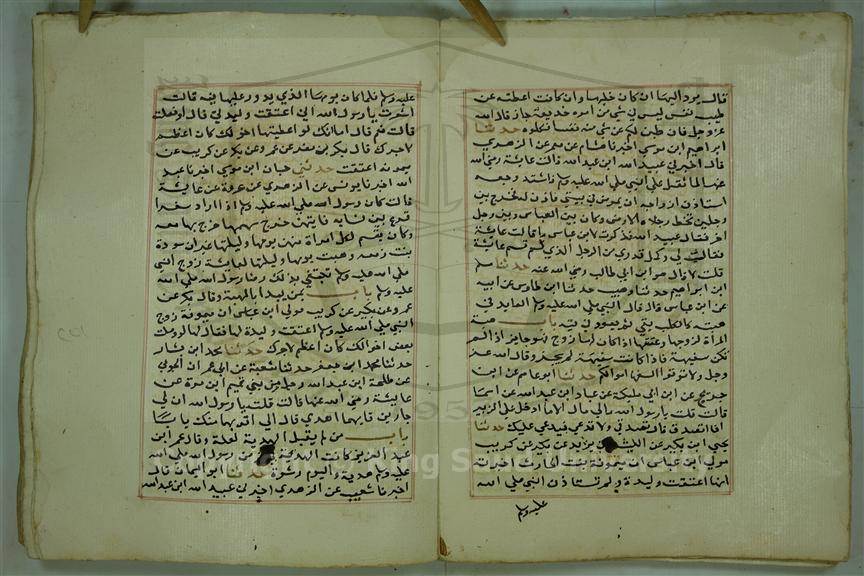 قال يرد اليها ان كان خلبها وان كانت اعطته عن
طيب نفس ليس في شي من امره خديعة جاز قال الله
عز وجل فان طبن لكم عن شي منه نفسا فكلوه حدثنا
ابراهيم ابن موسي اخبرنا هشام عن معمر عن الزهري
قال اخبرني عبيد الله ابن عبد الله قالت عائشة رضي الله
عنها لما ثقل علي النبي صلي الله عليه وسلم فاشتد وجعه
استاذن ازواجه ان يمرض في بيتي فاذن له فخرج بين
رجلين تخط رجلاه الارض وكان بين العباس وبين رجل
اخر فقال عبيد الله فذكرت لابن عباس ما قالت عائشة
فقال لي وهل تدري من الرجل الذي لم تسم عائشة
قلت لا قال هو ابن ابي طالب رضي الله عنه حدثنا مسلم
ابن ابراهيم حدثنا وهيب حدثنا ابن طاوس عن ابيه
عن ابن عباس قال قال النبي صلي الله عليه وسلم العايد في
هبته كالكلب يقي ثم يعود في قيه باب هبة
المراة لزوجها وعتقها اذا كان لها زوج فهو جايز اذا لم
تكن سفيهة فاذا كانت سفيهة لم يجز وقال الله عز
وجل ولا توتوا السفها اموالكم حدثنا ابو عاصم عن ابن
جريج عن ابن ابي مليكة عن عباد ابن عبد الله عن اسما
قالت قلت يا رسول الله مالي مال الا ما ادخل علي الزبير
افاتصدق قال تصدقي ولا توعي فيوعي عليك حدثنا
يحيي ابن بكير عن الليث عن يزيد عن بكير عن كريب
مولي ابن عباس ان ميمونة بنت الحارث اخبرته
انها اعتقت وليدة ولم تستاذن النبي صلي الله
عليه وسلم
عليه وسلم فلما كان يومها الذي يدور عليها فيه قالت
اشعرت يا رسول الله اني اعتقت وليدتي قال اوفعلت
قالت نعم قال اما انك لو اعطيتها اخوالك كان اعظم
لاجرك قال بكر بن مضر عن عمرو عن بكير عن كريب عن
ميمونة اعتقت حدثني حبان ابن موسي اخبرنا عبد
الله اخبرنا يونس عن الزهري عن عروة عن عائشة
قالت كان رسول الله صلي الله عليه وسلم اذا اراد سفرا
قرع بين نسايه فايتهن خرج سهمها خرج بها معه
وكان يقسم لكل امراة منهن يومها وليلتها غير ان سودة
بنت زمعه وهبت يومها وليلتها لعائشة زوج النبي
صلي الله عليه وسلم تبتغي بذلك رضا رسول الله صلي الله
عليه وسلم باب بمن يبدا بالهدية وقال بكر عن
عمرو عن بكير عن كريب مولي ابن عباس ان ميمونة زوج
النبي صلي الله عليه وسلم اعتقت وليدة لها فقال لها لو وصلت
بعض اخوالك كان اعظم لاجرك حدثنا محمد ابن بشار
حدثنا محمد ابن جعفر حدثنا شعبة عن ابي عمران الجوني
عن طلحة ابن عبد الله رجل من بني تميم ابن مرة عن
عائشة رضي الله عنها قالت قلت يا رسول الله ان لي
جارين فالي ايهما اهدي قال الي اقربهما منك بابا
باب من لم يقبل الهدية لعلة وقال عمر ابن
عبد العزيز كانت الهدية من رسول الله صلي الله
عليه وسلم هدية واليوم رشوة حدثنا ابو اليمان قال
اخبرنا شعيب عن الزهري اخبرني عبيد الله ابن عبد الله